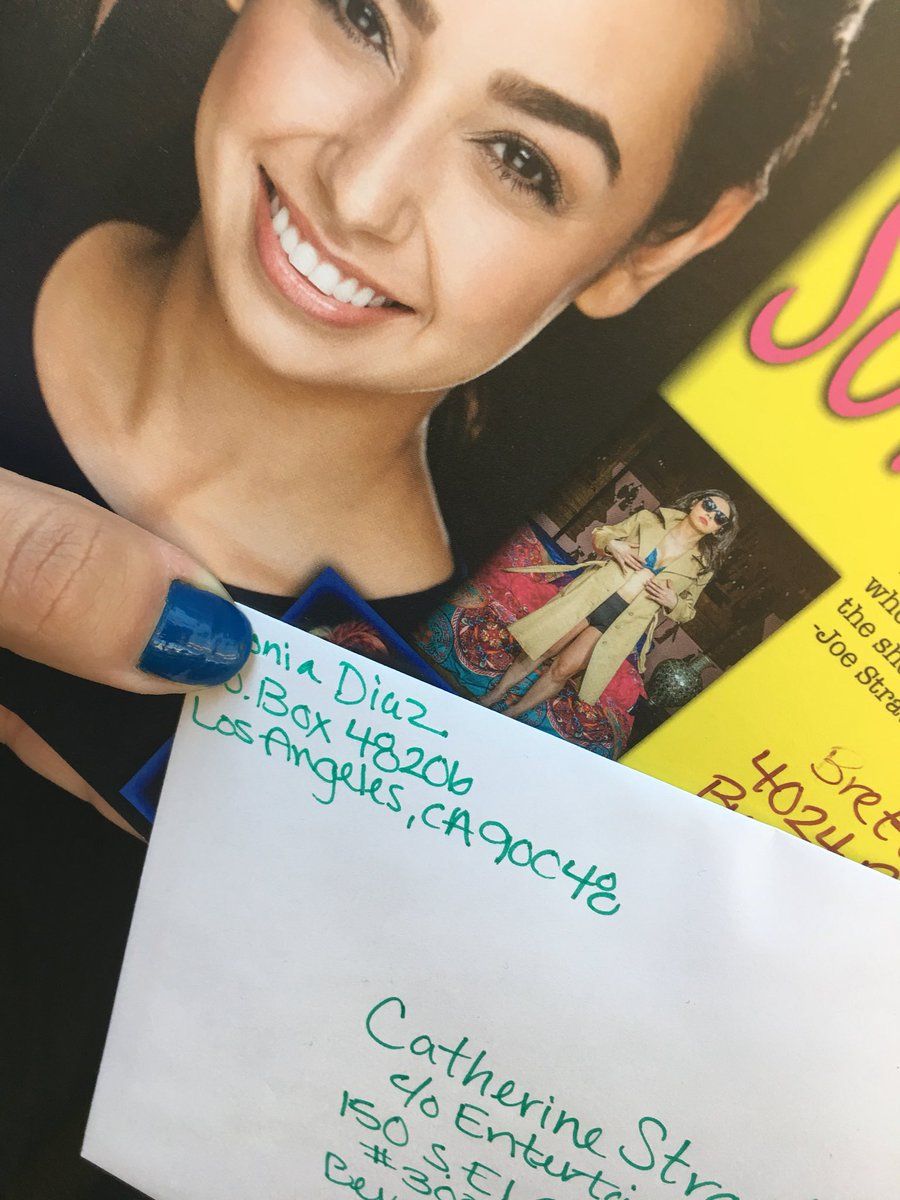 So
who
the sh
-Joe Stra
Bret
4024
onia Diaz
.O. Box 48206
Los Angeles, CA 90048
Catherine Str
c/o Enterta
150 S. El
#303
Bev